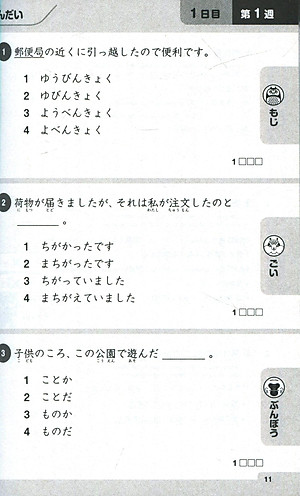 んだい
1日目
第1週
1 郵便局の近くに引っ越したので便利です。
1 ゆうびんきょく
2 ゆびんきょく
3 ようべんきょく
4 よべんきょく
もじ
1□□□
2 荷物が届きましたが、それは私が注文したのと
にもつ とど わたし ちゅうもん
______。
1 ちがかったです
2 まちがったです
3 ちがっていました
4 まちがえていました
ごい
1□□□
3 子供のころ、この公園で遊んだ______。
こども こうえん あそ
1 ことか
2 ことだ
3 ものか
4 ものだ
ぶんぽう
1□□□
11